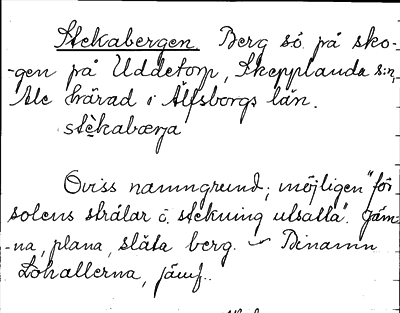 Stekabergen Berg sö. på sko-
-gen på Uddetorp, Skepplanda s:n,
Ale härad i Älfsborgs län.
stèkabærja
Oviss namngrund; möjligen "för
solens strålar o. stekning utsatta". Jäm-
-na, plana, släta berg. Binamn
Löhallerna, jämf.